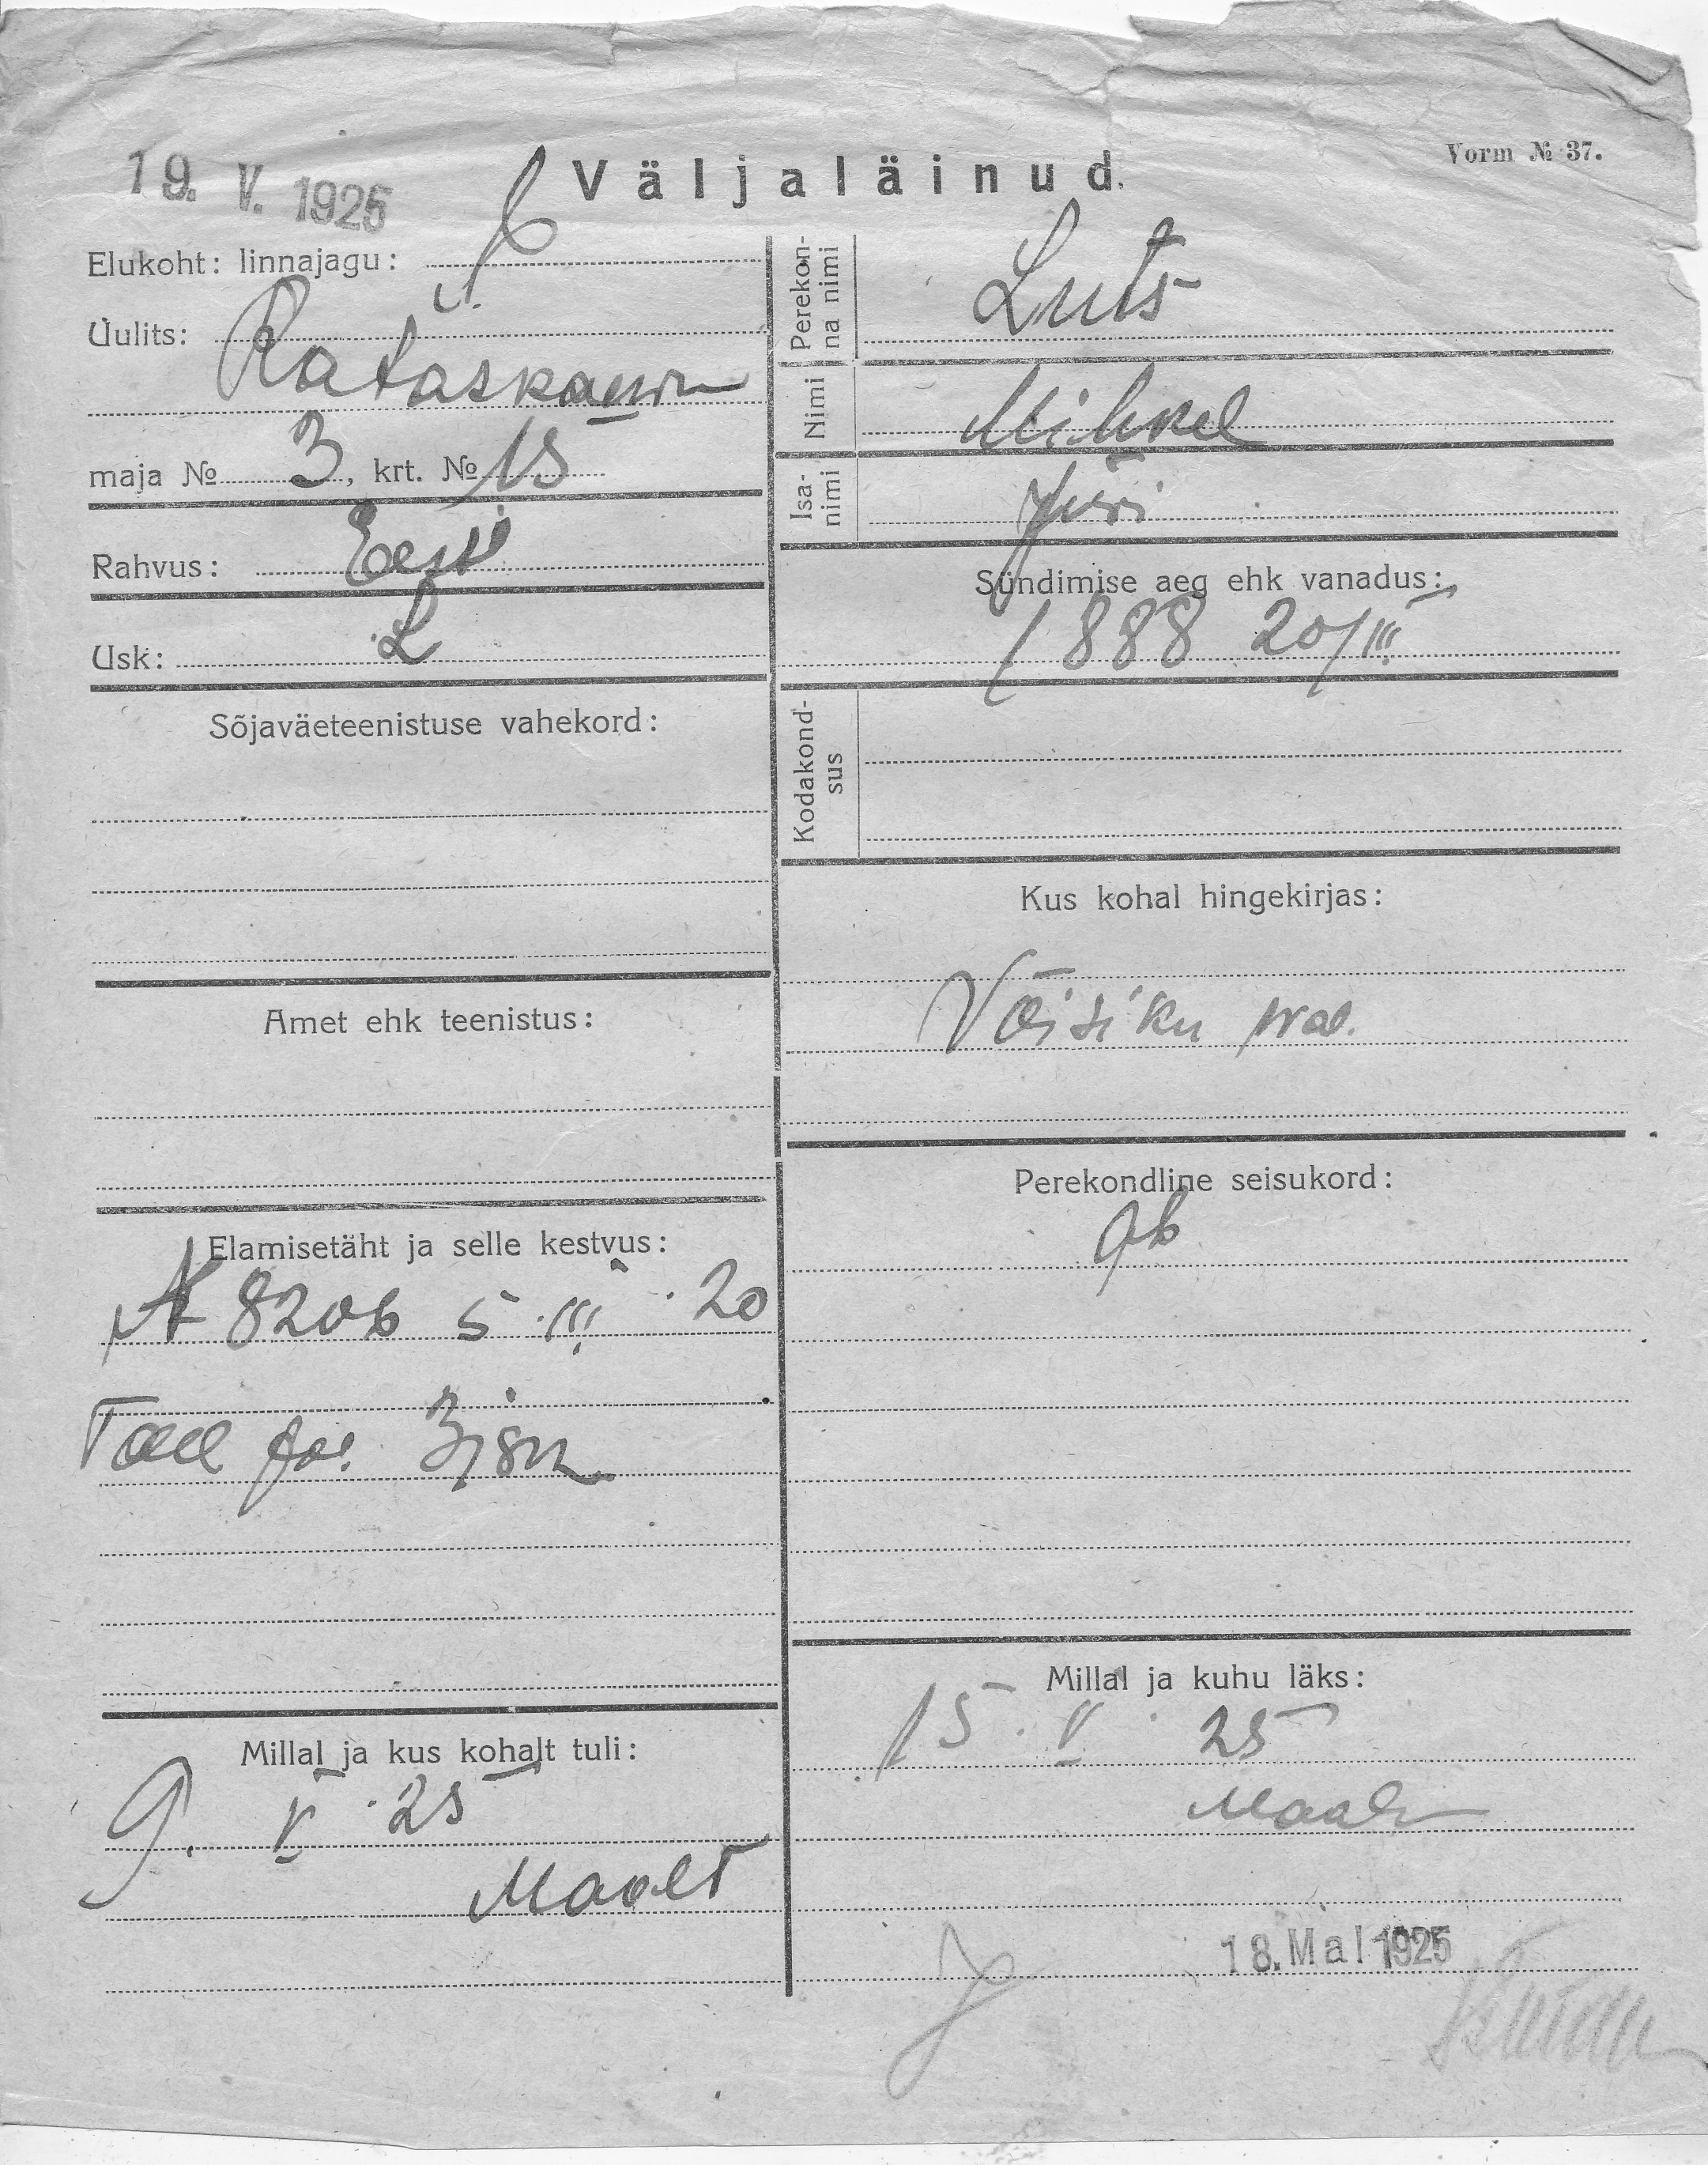 19. V. 1925
Väljaläinud.
Vorm № 37.
Elukoht: linnajagu:
Uulits:
Rataskaevu
maja № 3, krt. № 15
Rahvus: Eesti
Usk: L
Sõjaväeteenistuse vahekord:
Amet ehk teenistus:
Elamisetäht ja selle kestvus:
№ 8206 5 III 20
Tall jos. 3 jsk
Millal ja kus kohalt tuli:
9. V. 25
Maalt
Perekonna nimi Luts
Nimi Mihkel
Isanimi Jüri
Sündimise aeg ehk vanadus:
1888 20/III
Kodakondsus
Kus kohal hingekirjas:
Võisiku wal.
Perekondline seisukord:
Millal ja kuhu läks:
15. V 25
Maale
18. Mai 1925